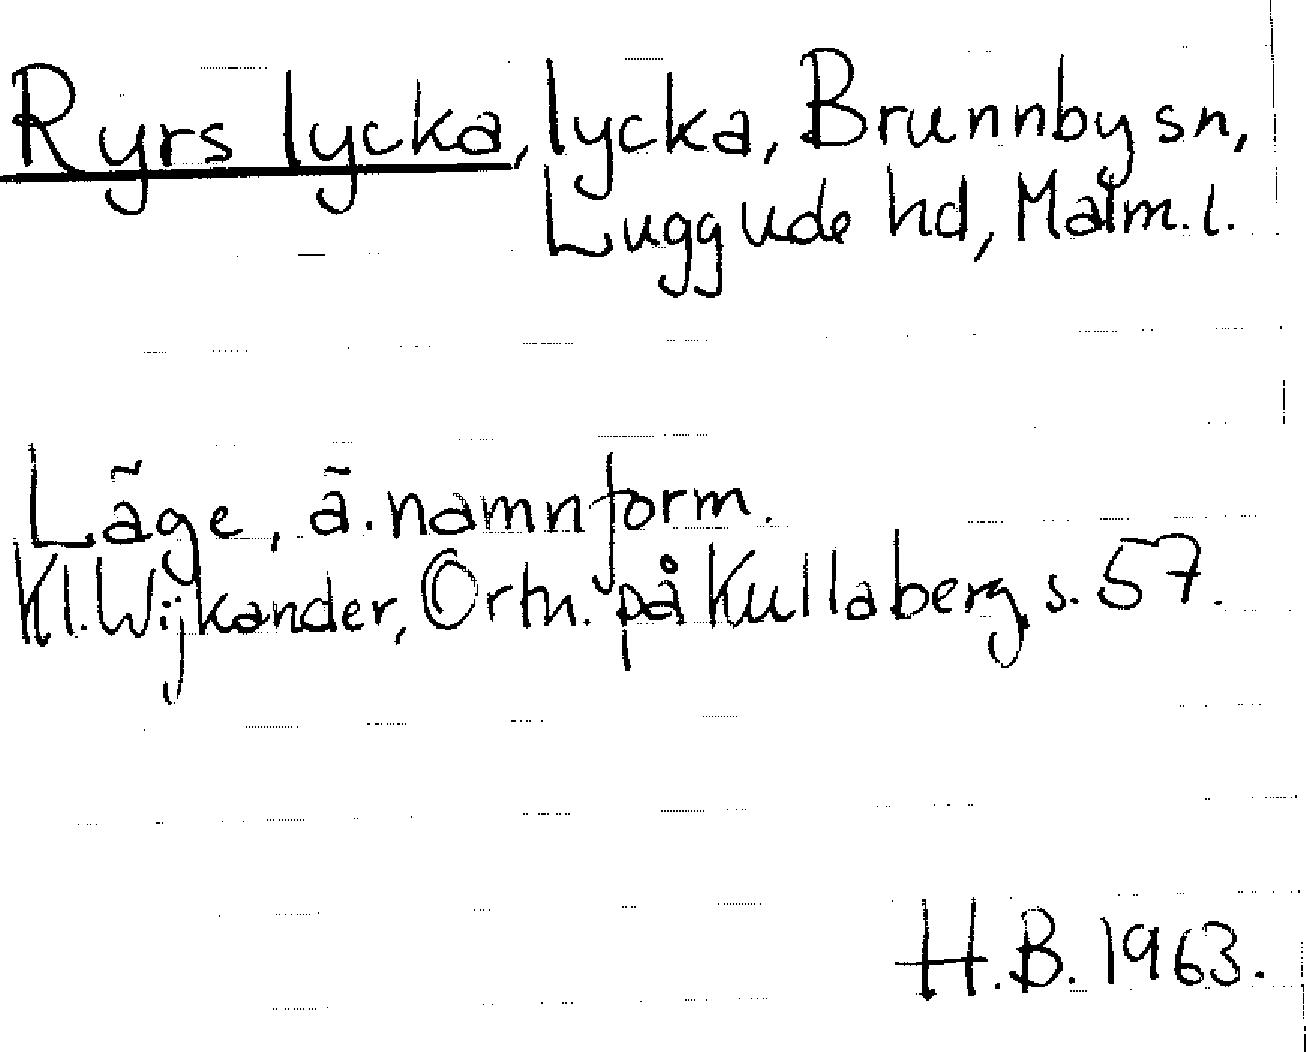 Ryrs lycka, lycka, Brunnby sn,
Luggude hd, Malm. l.
Läge, ä. namnform.
Kl. Wijkander, Ortn. på Kullaberg, s. 57.
H.B. 1963.